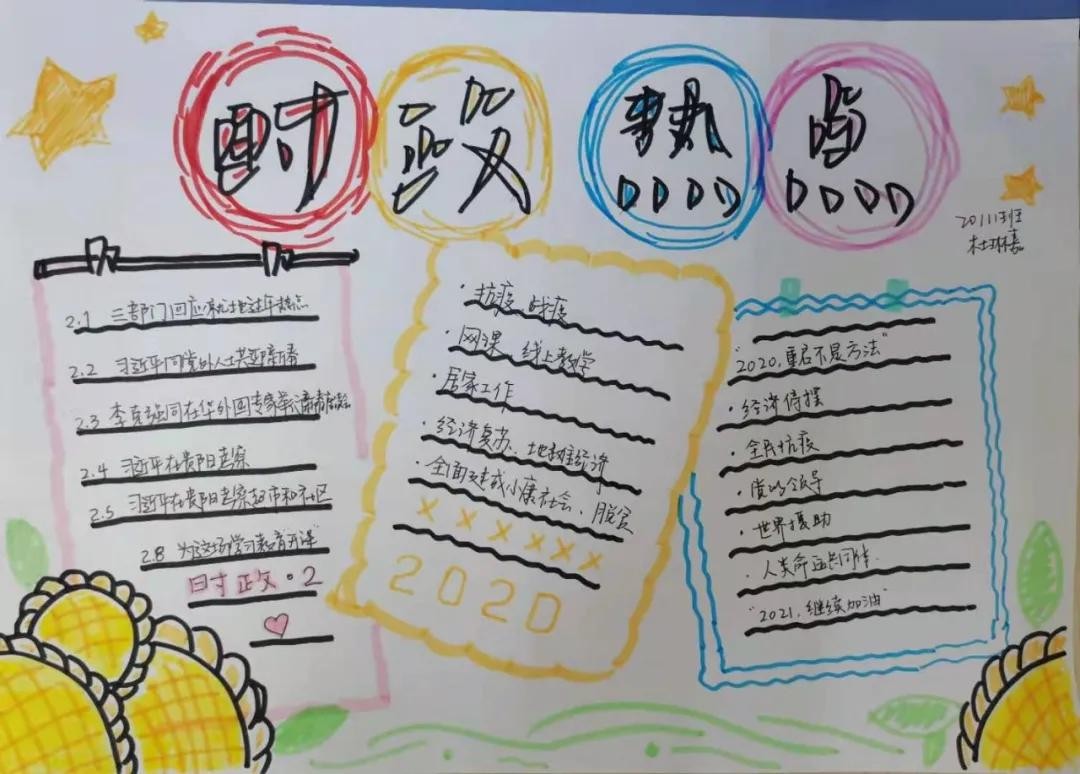 时政热点
20111班
杜琳嘉
2.1 三部门回应就地过年热点
2.2 习近平同党外人士共迎新春
2.3 李克强同在华外国专家举
2.4 习近平在贵阳考察
2.5 习近平在贵阳考察超市和社区
2.8 为这场学习教育开课
时政·2
·抗疫 战疫
·网课、线上教学
·居家工作
·经济复苏、地摊经济
·全面建成小康社会、脱贫
××××××
2020
"2020,重启不是方法"
·经济停摆
·全民抗疫
·党的领导
·世界援助
·人类命运共同体
"2021,继续加油"